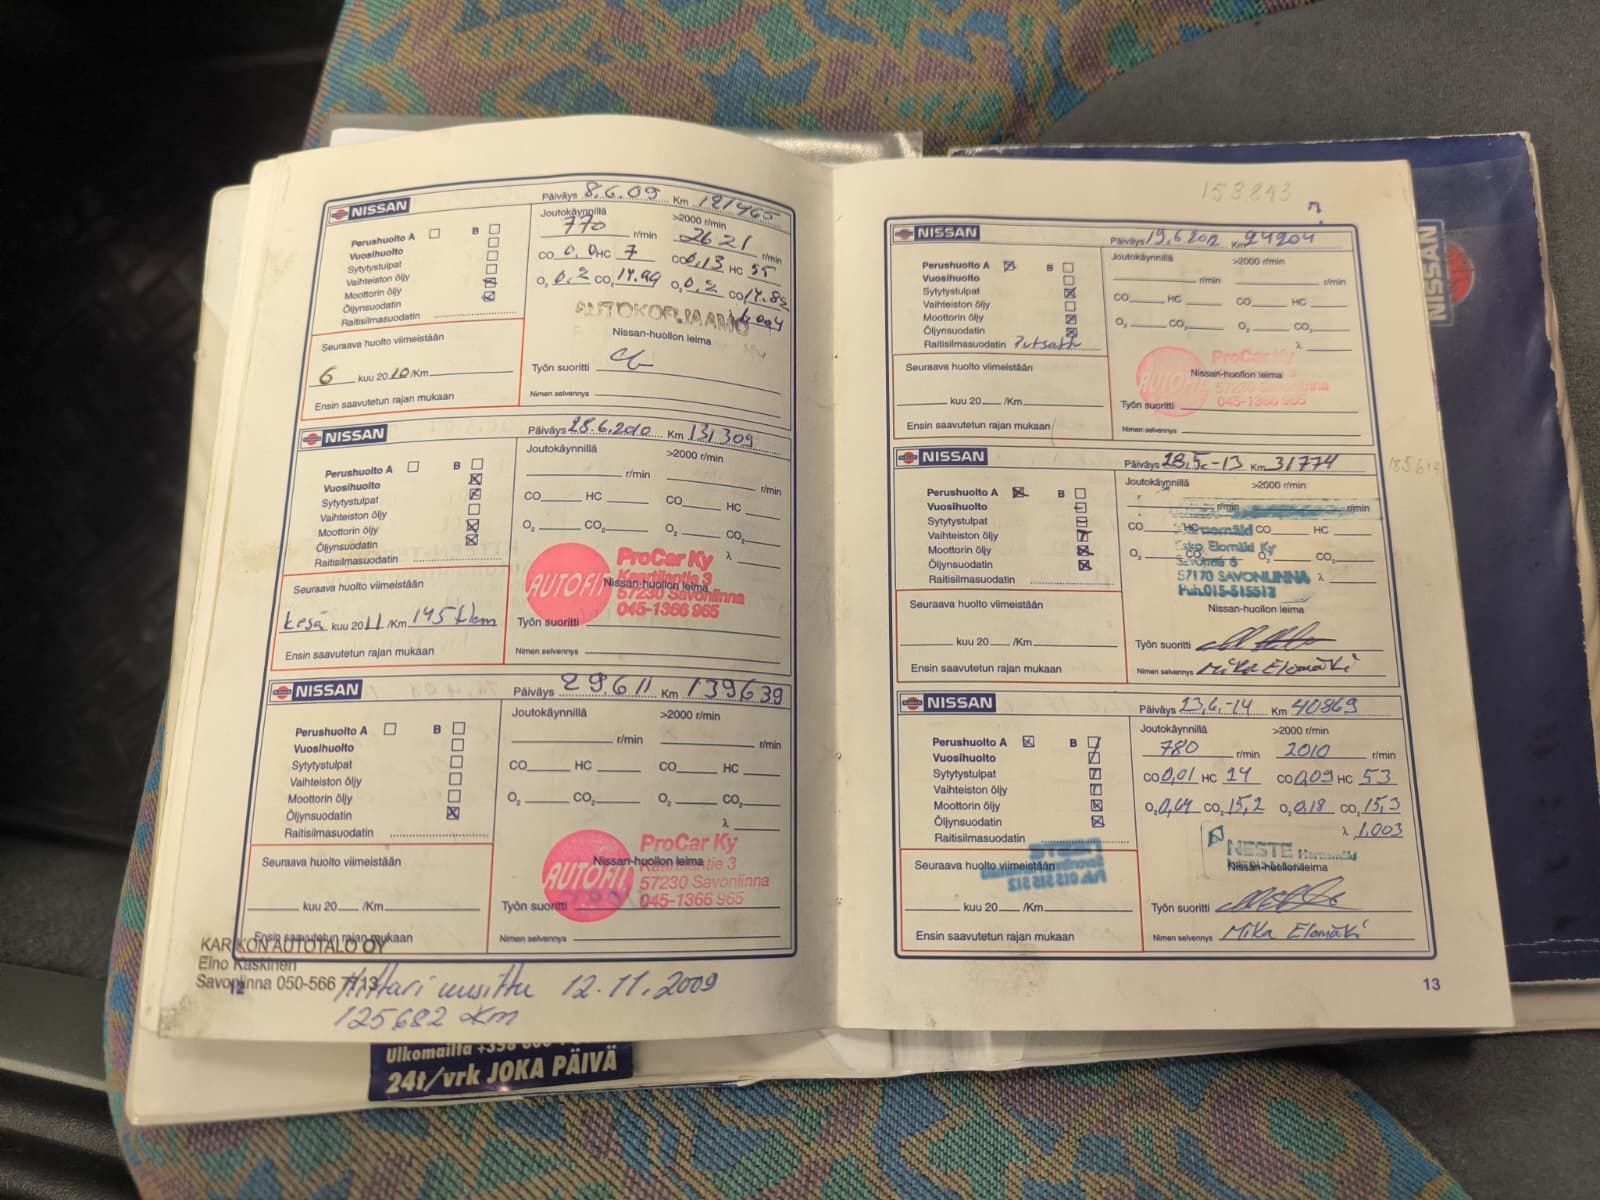 NISSAN
Päiväys 8.6.09 Km 121465
Perushuolto A B
Vuosihuolto
Sytytystulpat
Vaihteiston öljy
Moottorin öljy
Öljynsuodatin
Raitisilmasuodatin
Joutokäynnillä >2000 r/min
770 r/min 2621 r/min
CO 0,0 HC 7 CO 0,13 HC 55
O₂ 0,2 CO₂ 14.99 O₂ 0,2 CO₂ 14.82
1.004
AUTOKORJAAMO
Nissan-huollon leima
Seuraava huolto viimeistään
6 kuu 2010 /Km
Ensin saavutetun rajan mukaan
Työn suoritti
Nimen selvennys
NISSAN
Päiväys 28.6.2010 Km 131309
Perushuolto A B
Vuosihuolto
Sytytystulpat
Vaihteiston öljy
Moottorin öljy
Öljynsuodatin
Raitisilmasuodatin
Joutokäynnillä >2000 r/min
r/min r/min
CO HC CO HC
O₂ CO₂ O₂ CO₂
λ
AUTOFIT
ProCar Ky
Nissan-huollon leima
57230 Savonlinna
045-1366 965
Seuraava huolto viimeistään
kesä kuu 2011 /Km 145 tkm
Ensin saavutetun rajan mukaan
Työn suoritti
Nimen selvennys
NISSAN
Päiväys 29.6.11 Km 139639
Perushuolto A B
Vuosihuolto
Sytytystulpat
Vaihteiston öljy
Moottorin öljy
Öljynsuodatin
Raitisilmasuodatin
Joutokäynnillä >2000 r/min
r/min r/min
CO HC CO HC
O₂ CO₂ O₂ CO₂
λ
AUTOFIT
ProCar Ky
Nissan-huollon leima
57230 Savonlinna
045-1366 965
Seuraava huolto viimeistään
kuu 20 /Km
Ensin saavutetun rajan mukaan
Työn suoritti
Nimen selvennys
KARIKON AUTOTALO OY
Eino Kaskinen
Savonlinna 050-566 7713
12
Mittari uusittu 12.11.2009
125682 km
Ulkomailta +358
24t/vrk JOKA PÄIVÄ
153843
NISSAN
Päiväys 19.6.2012 Km 24204
Perushuolto A B
Vuosihuolto
Sytytystulpat
Vaihteiston öljy
Moottorin öljy
Öljynsuodatin
Raitisilmasuodatin Putsattu
Joutokäynnillä >2000 r/min
r/min r/min
CO HC CO HC
O₂ CO₂ O₂ CO₂
λ
AUTOFIT
ProCar Ky
Nissan-huollon leima
57230 Savonlinna
045-1366 965
Seuraava huolto viimeistään
kuu 20 /Km
Ensin saavutetun rajan mukaan
Työn suoritti
Nimen selvennys
NISSAN
Päiväys 28.5.-13 Km 31774
Perushuolto A B
Vuosihuolto
Sytytystulpat
Vaihteiston öljy
Moottorin öljy
Öljynsuodatin
Raitisilmasuodatin
Joutokäynnillä >2000 r/min
r/min r/min
CO HC CO HC
O₂ CO₂ O₂ CO₂
λ
Esko Elomäki Ky
57170 SAVONLINNA
Puh.015-515512
Nissan-huollon leima
Seuraava huolto viimeistään
kuu 20 /Km
Ensin saavutetun rajan mukaan
Työn suoritti
Nimen selvennys Mika Elomäki
NISSAN
Päiväys 23.6.-14 Km 40869
Perushuolto A B
Vuosihuolto
Sytytystulpat
Vaihteiston öljy
Moottorin öljy
Öljynsuodatin
Raitisilmasuodatin
Joutokäynnillä >2000 r/min
780 r/min 2010 r/min
CO 0,01 HC 24 CO 0,09 HC 53
O₂ 0,64 CO₂ 15,2 O₂ 0,18 CO₂ 15,3
λ 1,003
NESTE
Nissan-huollon leima
Seuraava huolto viimeistään
kuu 20 /Km
Ensin saavutetun rajan mukaan
Työn suoritti
Nimen selvennys Mika Elomäki
13
NISSAN